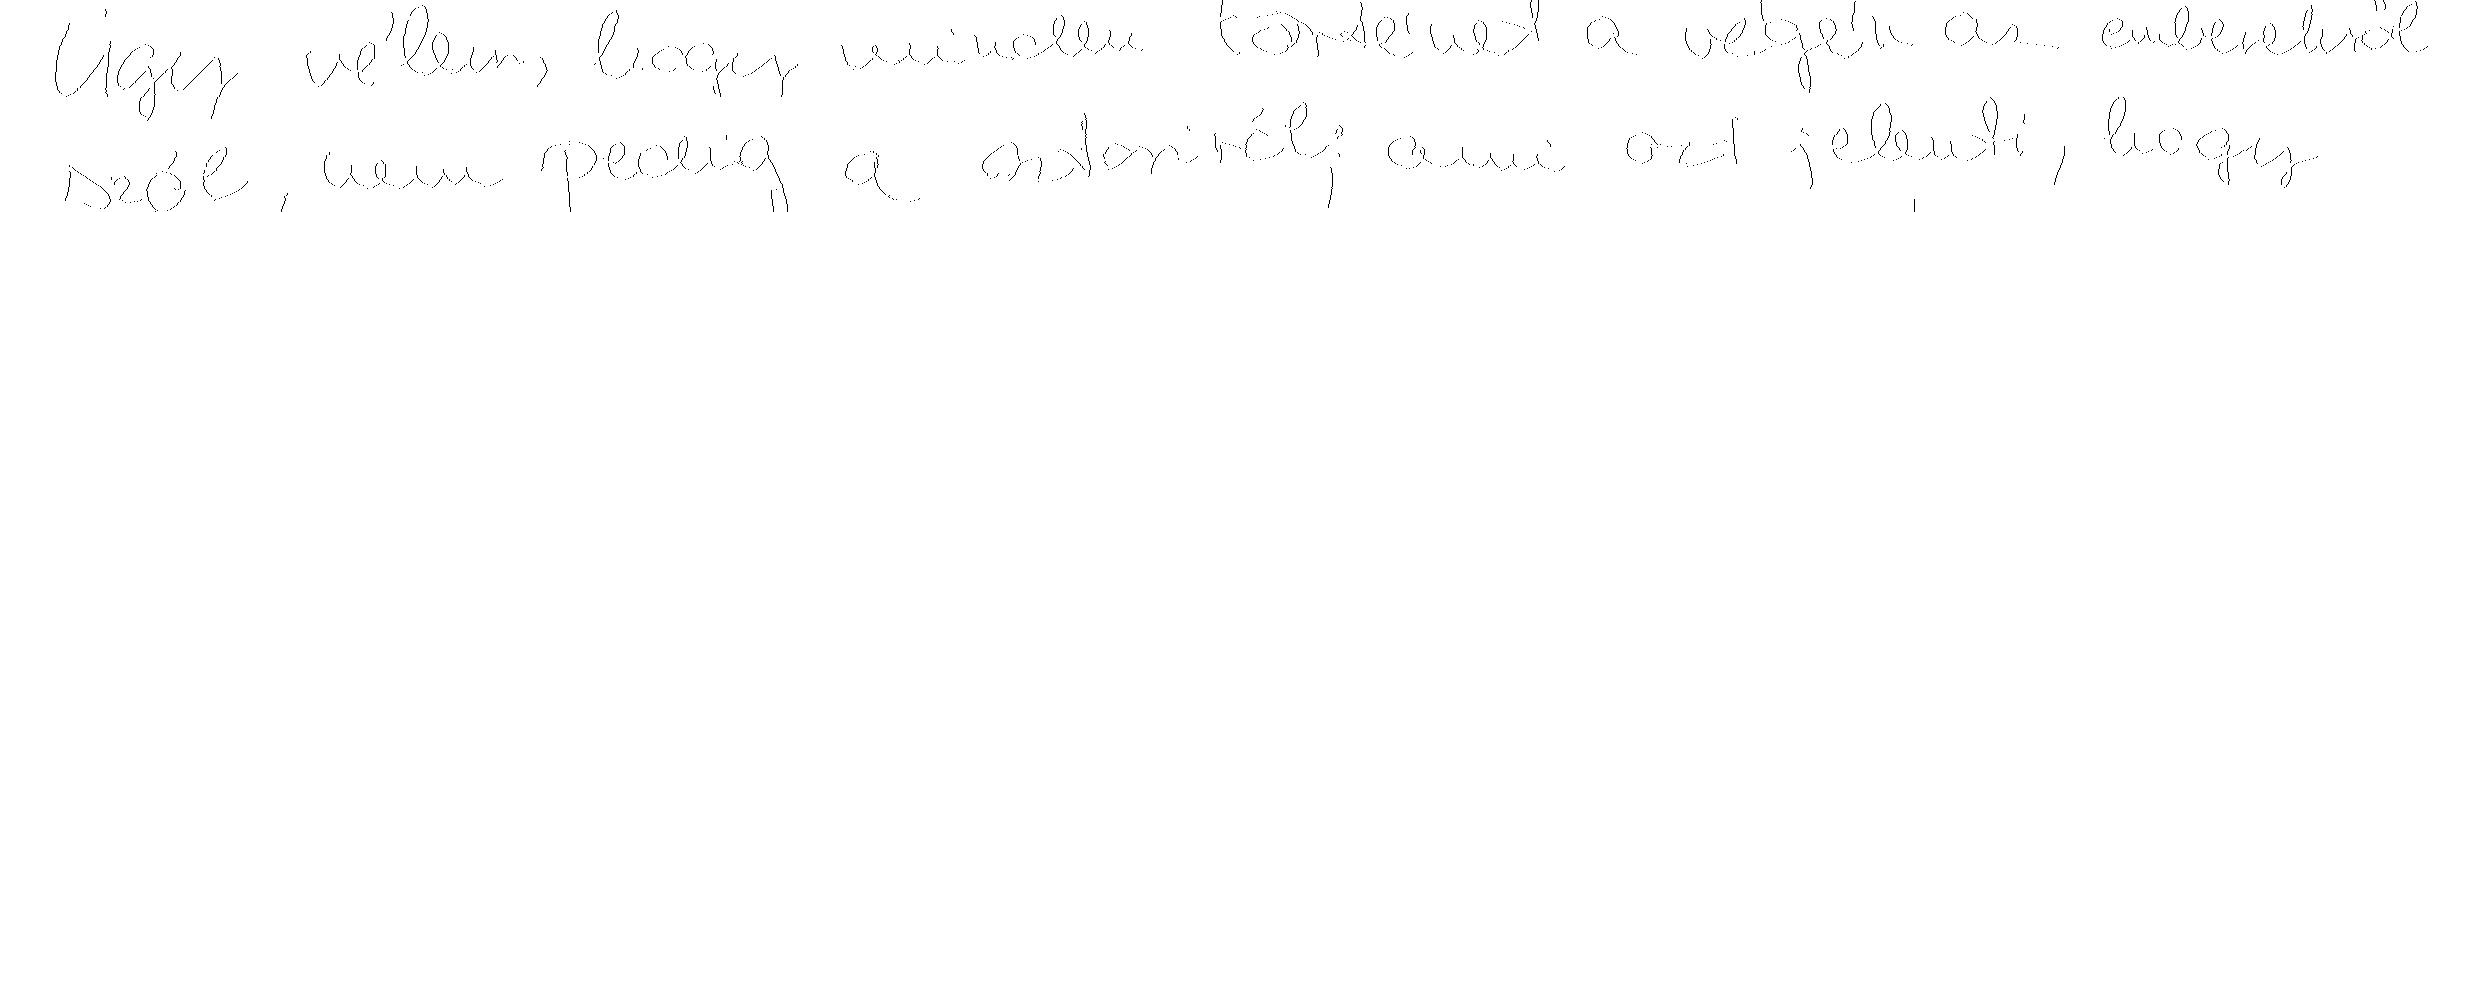 Úgy vélem, hogy minden történet a végén az emberekről
szól, nem pedig a sztoriról; ami azt jelenti, hogy